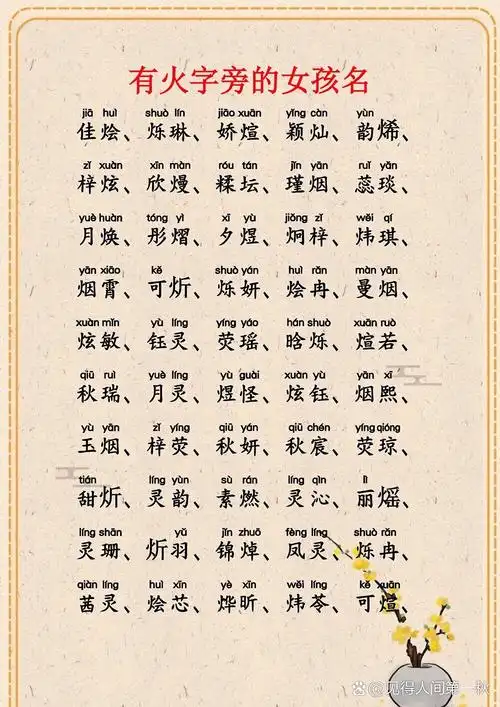 有火字旁的女孩名
jiā huì shuò lín jiāo xuān yǐng càn yùn
佳烩、烁琳、娇煊、颖灿、韵烯、
zǐ xuàn xīn màn róu tán jǐn yān ruǐ yǎn
梓炫、欣熳、糅坛、瑾烟、蕊琰、
yuè huàn tóng yì xī yù jiǒng zǐ wěi qí
月焕、彤熠、夕煜、炯梓、炜琪、
yān xiāo kě shuò yán huì rǎn màn yān
烟霄、可炘、烁妍、烩冉、曼烟、
xuàn mǐn yù líng yíng yáo hán shuò xuān ruò
炫敏、钰灵、荧瑶、晗烁、煊若、
qiū ruì yuè líng yù guài xuàn yù yān xī
秋瑞、月灵、煜怪、炫钰、烟熙、
yù yān zǐ yíng qiū yán qiū chén yíng qióng
玉烟、梓荧、秋妍、秋宸、荧琼、
tián líng yùn sù rán líng qìn lì
甜炘、灵韵、素燃、灵沁、丽熎、
líng shān yǔ jǐn zhuō fèng líng shuò rǎn
灵珊、炘羽、锦焯、凤灵、烁冉、
qiàn líng huì xīn yè xīn wěi líng kě xuān
茜灵、烩芯、烨昕、炜苓、可煊、
见得人间第一秋